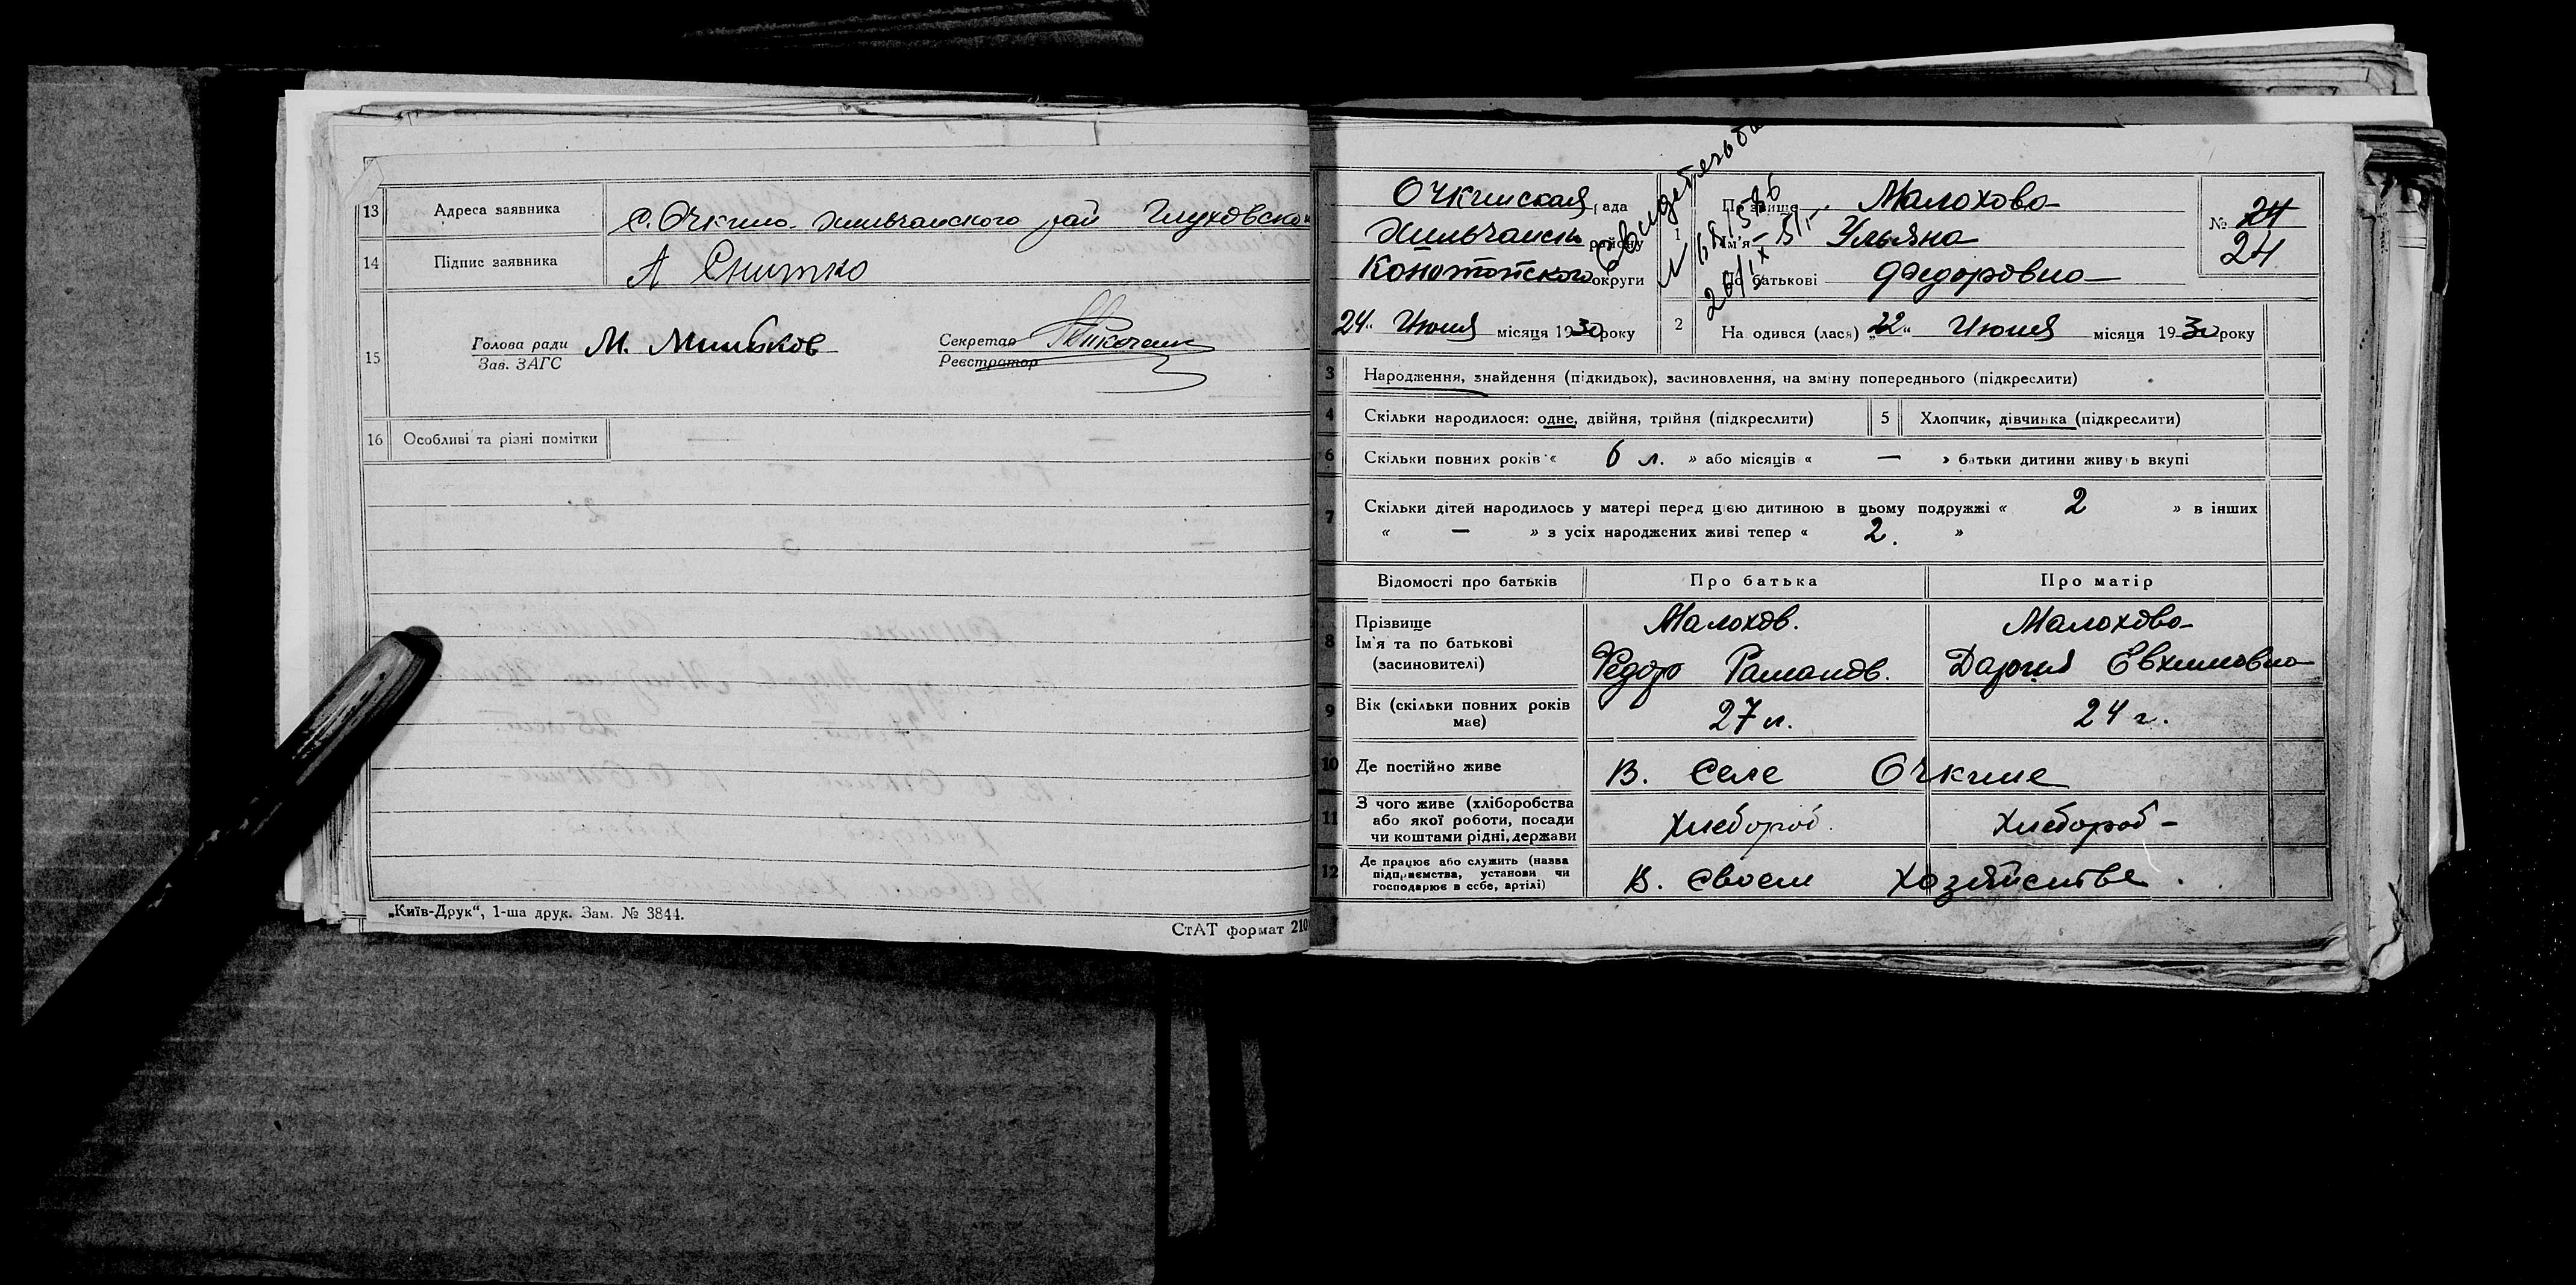 13 Адреса заявника с. Очкино Хильчанского рай Глуховско
14 Підпис заявника А Снитко
15 Голова ради М. Мишаков Секретар
Зав. ЗАГС Реєстратор
16 Особливі та різні помітки — —
„Київ-Друк“, 1-ша друк. Зам. № 3844.
СтАТ формат 210
Очкинская рада
Хильчанск району
Конотопского округи
24" Июня місяця 1930 року
Свидетельство
20/IX—51 г
1 Прізвище Малохова
Ім'я Ульяна
По батькові Федоровна
№ 24
24
2 Народився (лася) „22" Июня місяця 1930 року
3 Народження, знайдення (підкидьок), засиновлення, на зміну попереднього (підкреслити)
4 Скільки народилося: одне, двійня, трійня (підкреслити) 5 Хлопчик, дівчинка (підкреслити)
6 Скільки повних років « 6 л. » або місяців « — » батьки дитини живуть вкупі
7 Скільки дітей народилось у матері перед цією дитиною в цьому подружжі « 2 » в інших
« — » з усіх народжених живі тепер « 2. »
Відомості про батьків Про батька Про матір
8 Прізвище Малохов. Малохова
Ім'я та по батькові
(засиновителі) Федор Раманов. Дария Евхимовна
9 Вік (скільки повних років
має) 27 л. 24 г.
10 Де постійно живе В. Селе Очкине
11 З чого живе (хліборобства
або якої роботи, посади
чи коштами рідні, держави Хлебороб. Хлебороб—
12 Де працює або служить (назва
підприємства, установи чи
господарює в себе, артілі) В. своем хозяйстве.